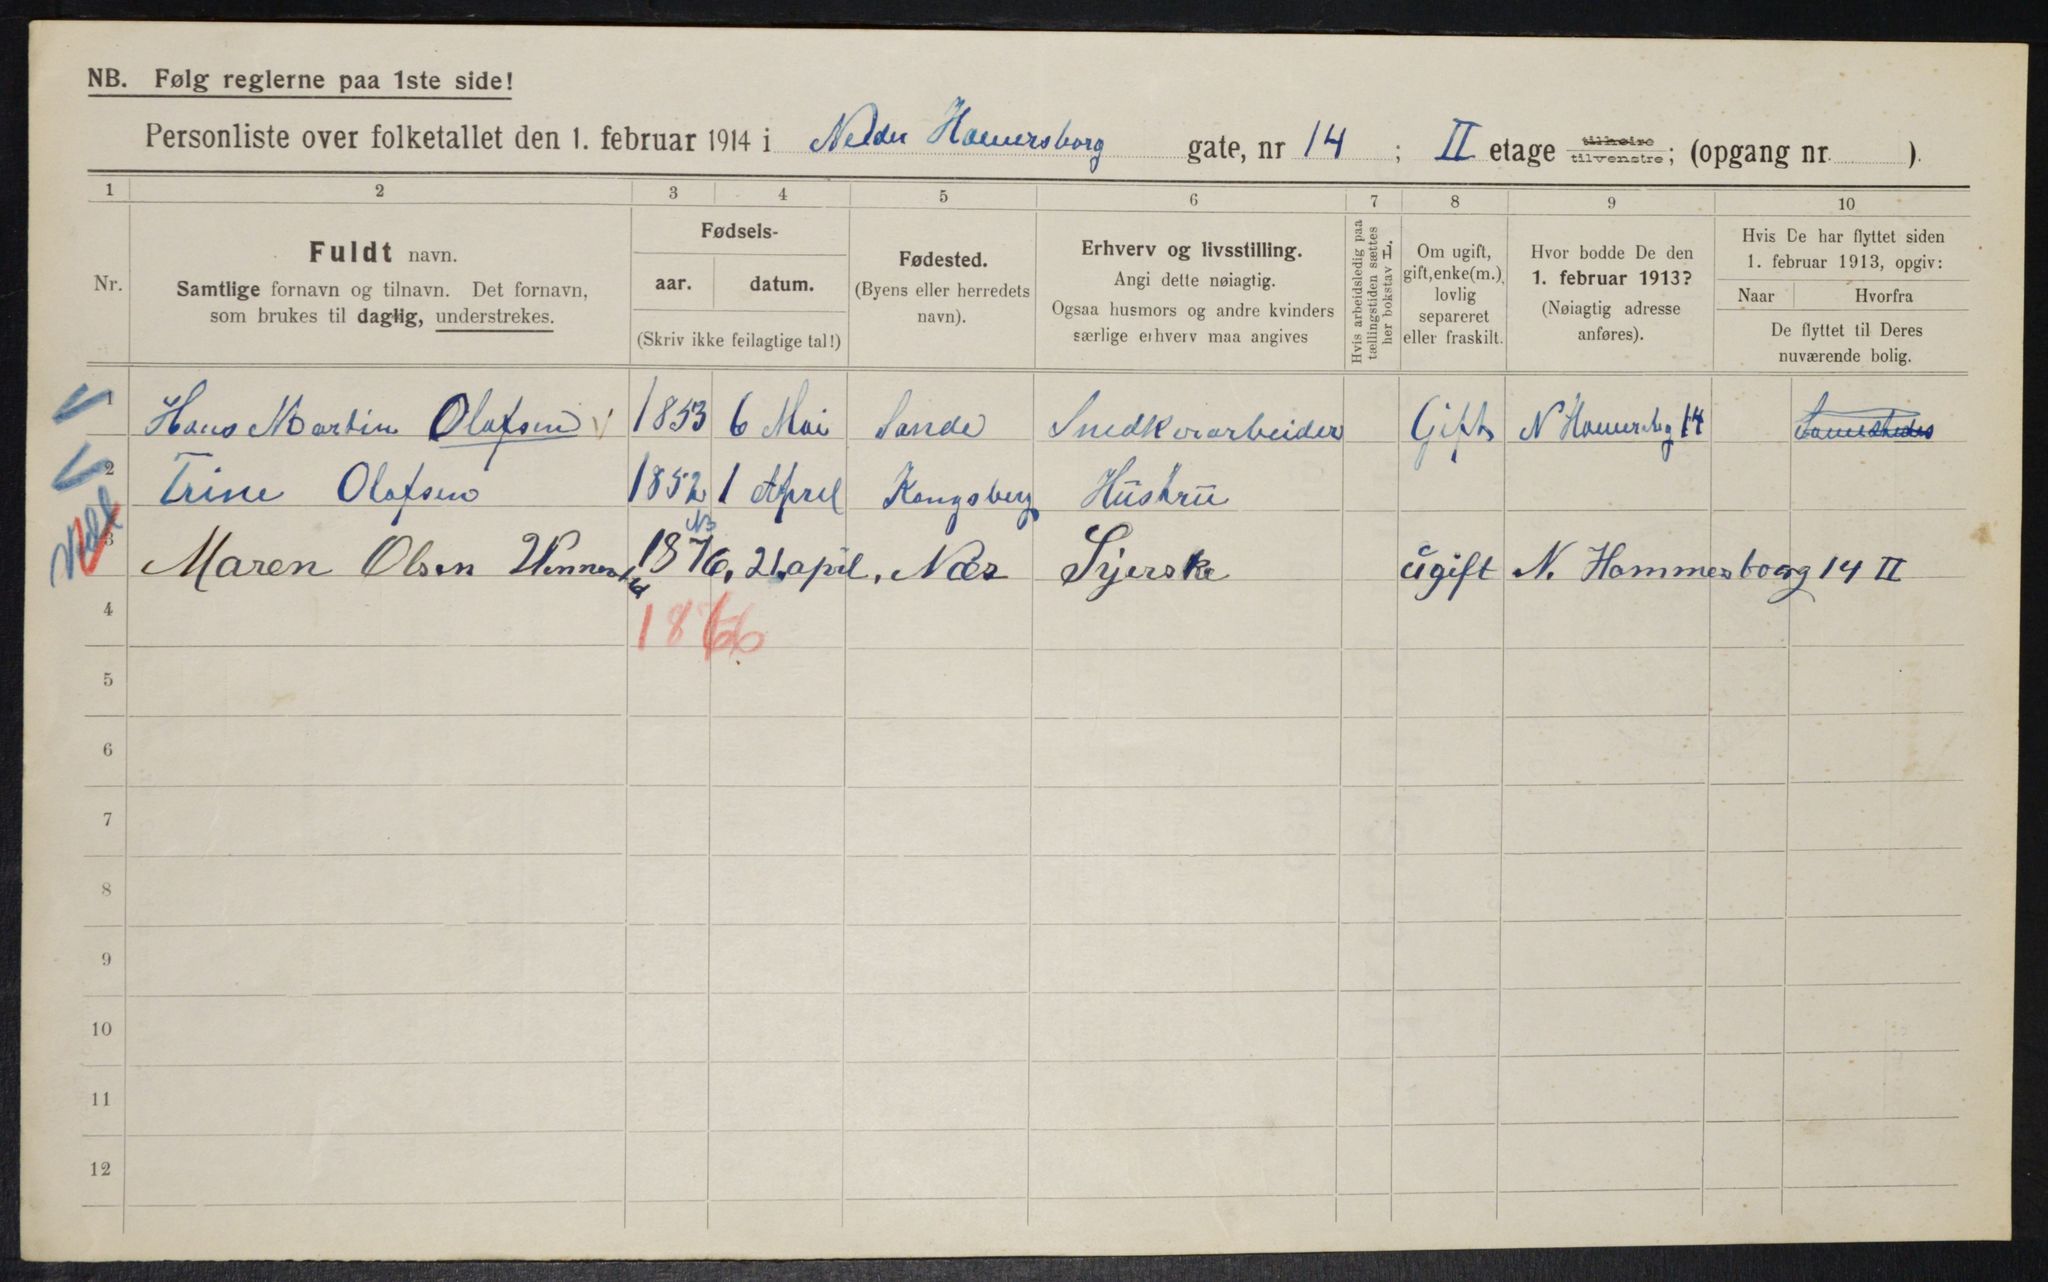 NB. Følg reglerne paa 1ste side!
Personliste over folketallet den 1. februar 1914 i Nedre Hamersborg gate, nr 14 ; II etage tilhøire tilvenstre; (opgang nr. ).
1 2 3 4 5 6 7 8 9 10
Nr.
Fuldt navn.
Samtlige fornavn og tilnavn. Det fornavn,
som brukes til daglig, understrekes.
Fødsels-
aar. datum.
(Skriv ikke feilagtige tal!)
Fødested.
(Byens eller herredets
navn).
Erhverv og livsstilling.
Angi dette nøiagtig.
Ogsaa husmors og andre kvinders
særlige erhverv maa angives
Hvis arbeidsledig paa
tællingstiden sættes
her bokstav L.
Om ugift,
gift, enke(m.),
lovlig
separeret
eller fraskilt.
Hvor bodde De den
1. februar 1913?
(Nøiagtig adresse
anføres).
Hvis De har flyttet siden
1. februar 1913, opgiv:
Naar Hvorfra
De flyttet til Deres
nuværende bolig.
1 Hans Martin Olafsen 1853 6 Mai Sande Snedkerarbeider Gift N Hamersbg 14
2 Trine Olafsen 1852 1 April Kongsberg Hustru
3 Maren Olsen 1876, 21, april, Næs Syerske ugift N. Hammersborg 14 II
4 1866
5
6
7
8
9
10
11
12